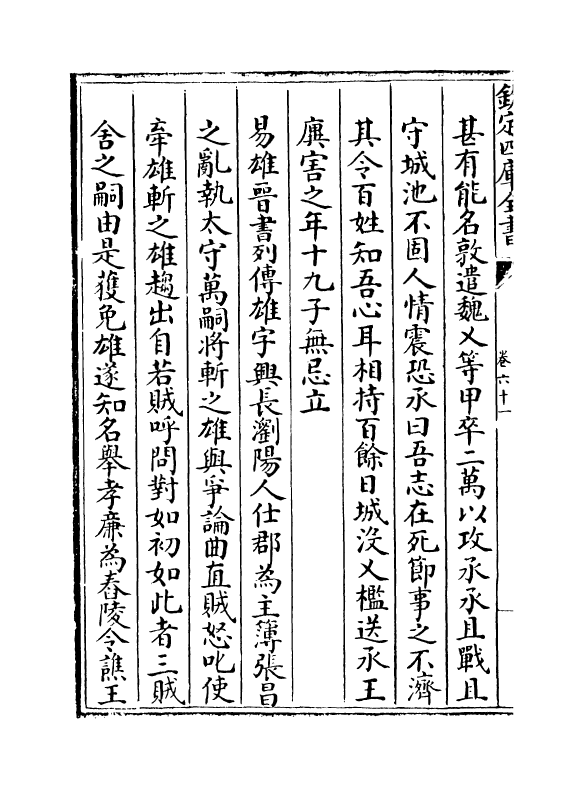 欽定四庫全書
卷六十一
甚有能名敦遣魏乂等甲卒二萬以攻承承且戰且
守城池不固人情震恐承曰吾志在死節事之不濟
其令百姓知吾心耳相持百餘日城没乂檻送承王
廙害之年十九子無忌立
易雄晉書列傳雄字興長瀏陽人仕郡為主簿張昌
之亂執太守萬嗣將斬之雄與爭論曲直賊怒叱使
牽雄斬之雄趨出自若賊呼問對如初如此者三賊
舍之嗣由是獲免雄遂知名舉孝廉為舂陵令譙王